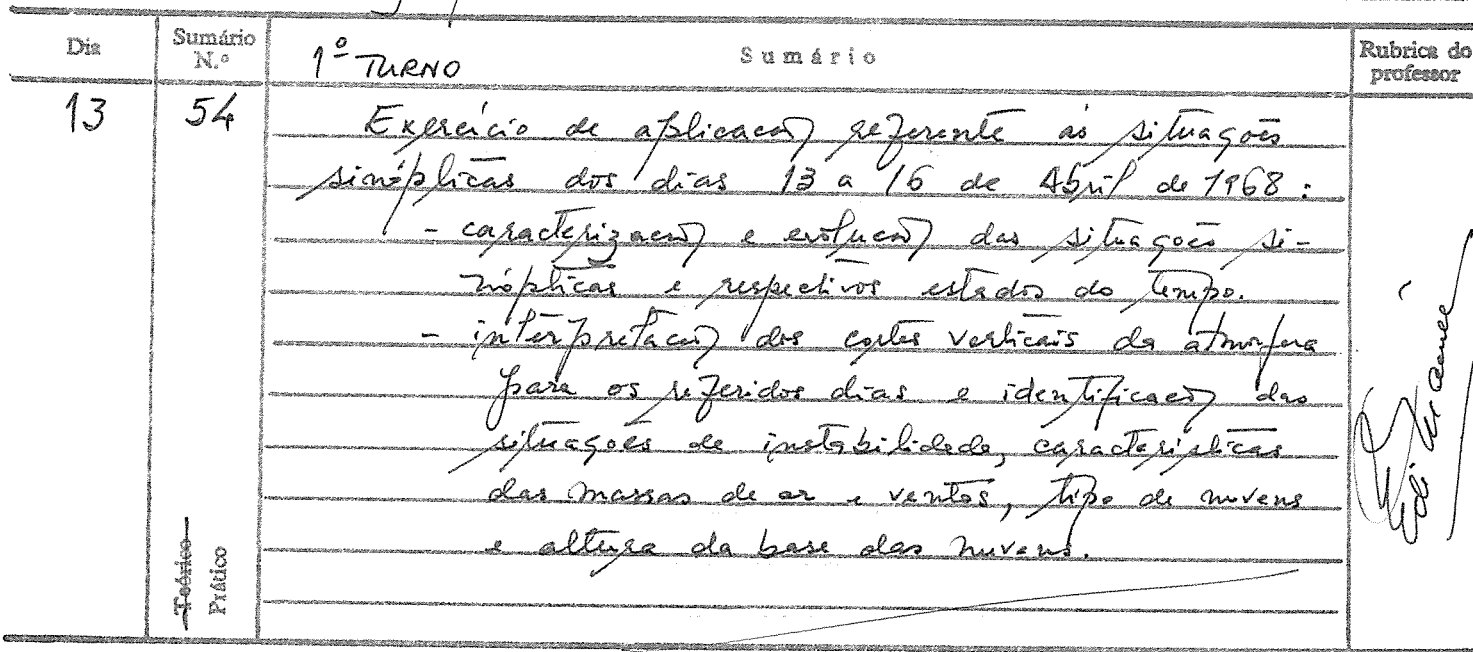 Dia Sumário N.º 1º TURNO Sumário Rubrica do professor
13 54 Exercício de aplicação referente às situações
sinópticas dos dias 13 a 16 de Abril de 1968:
- caracterização e evolução das situações si-
nópticas e respectivos estados do tempo.
- interpretação dos cortes verticais da atmosfera
para os referidos dias e identificação das
situações de instabilidade, características
das massas de ar e ventos, tipo de nuvens
e altura da base das nuvens.
Teórico
Prático